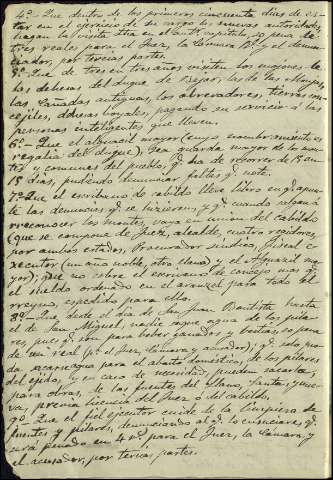 4.ª Que dentro de los primeros cincuenta dias de es-
tar en el ejercicio de su cargo las nuevas autoridades,
hagan la visita en el ant.r capitulo, so pena de
tres reales para el Juez, la Cámara y el denun-
ciador, por tercias partes.
5.ª Que de tres en tres años visiten los mojones de
las dehesas del Duque de Bejar, las de las Monjas,
las Cañadas antiguas, los abrevaderos, tierras con-
cejiles, dehesas boyales, pagando su servicio á las
personas inteligentes que lleven.
6.ª Que el alguacil mayor (cuyo nombramiento es
regalia del Duque), sea guarda mayor de los mon-
tes y comunes del pueblo, q.e ha de recorrer de 15 en
15 dias, pudiendo denunciar faltas q.e note.
7.ª Que el escribano de cabildo lleve libro en q.e apun-
te las denuncias q.e se hicieren, y q.e cuando salgan á
reconocer los montes, vaya en union del Cabildo
(que se compone de Juez, alcalde, cuatro regidores,
por ambos estados, Procurador sindico, fiscal e-
xecutor (un año noble, otro llano) y el Alguacil ma-
yor); que no cobre el escribano de concejo mas q.e
el sueldo ordenado en el arancel para todo el
reyno, expedido para ello.
8.ª Que desde el dia de San Juan Bautista hasta
el de San Miguel, nadie saque agua de los pila-
res, pues q.e son para beber ganados y bestias, so pena
de un real (p.a el Juez, Cámara y acusador); q.e solo pue-
da sacar agua para el abasto doméstico, de los pilares
del ejido, y en caso de necesidad, pueden sacarla,
para obras, de las fuentes del Llano, Santa, y nue-
va, previa licencia del Juez ó del cabildo.
9.ª Que el fiel ejecutor cuide de la limpieza de
fuentes y pilares, denunciando al q.e lo ensuciare, q.e
será penado en 4 r.s para el Juez, la Cámara y
el acusador, por tercias partes.